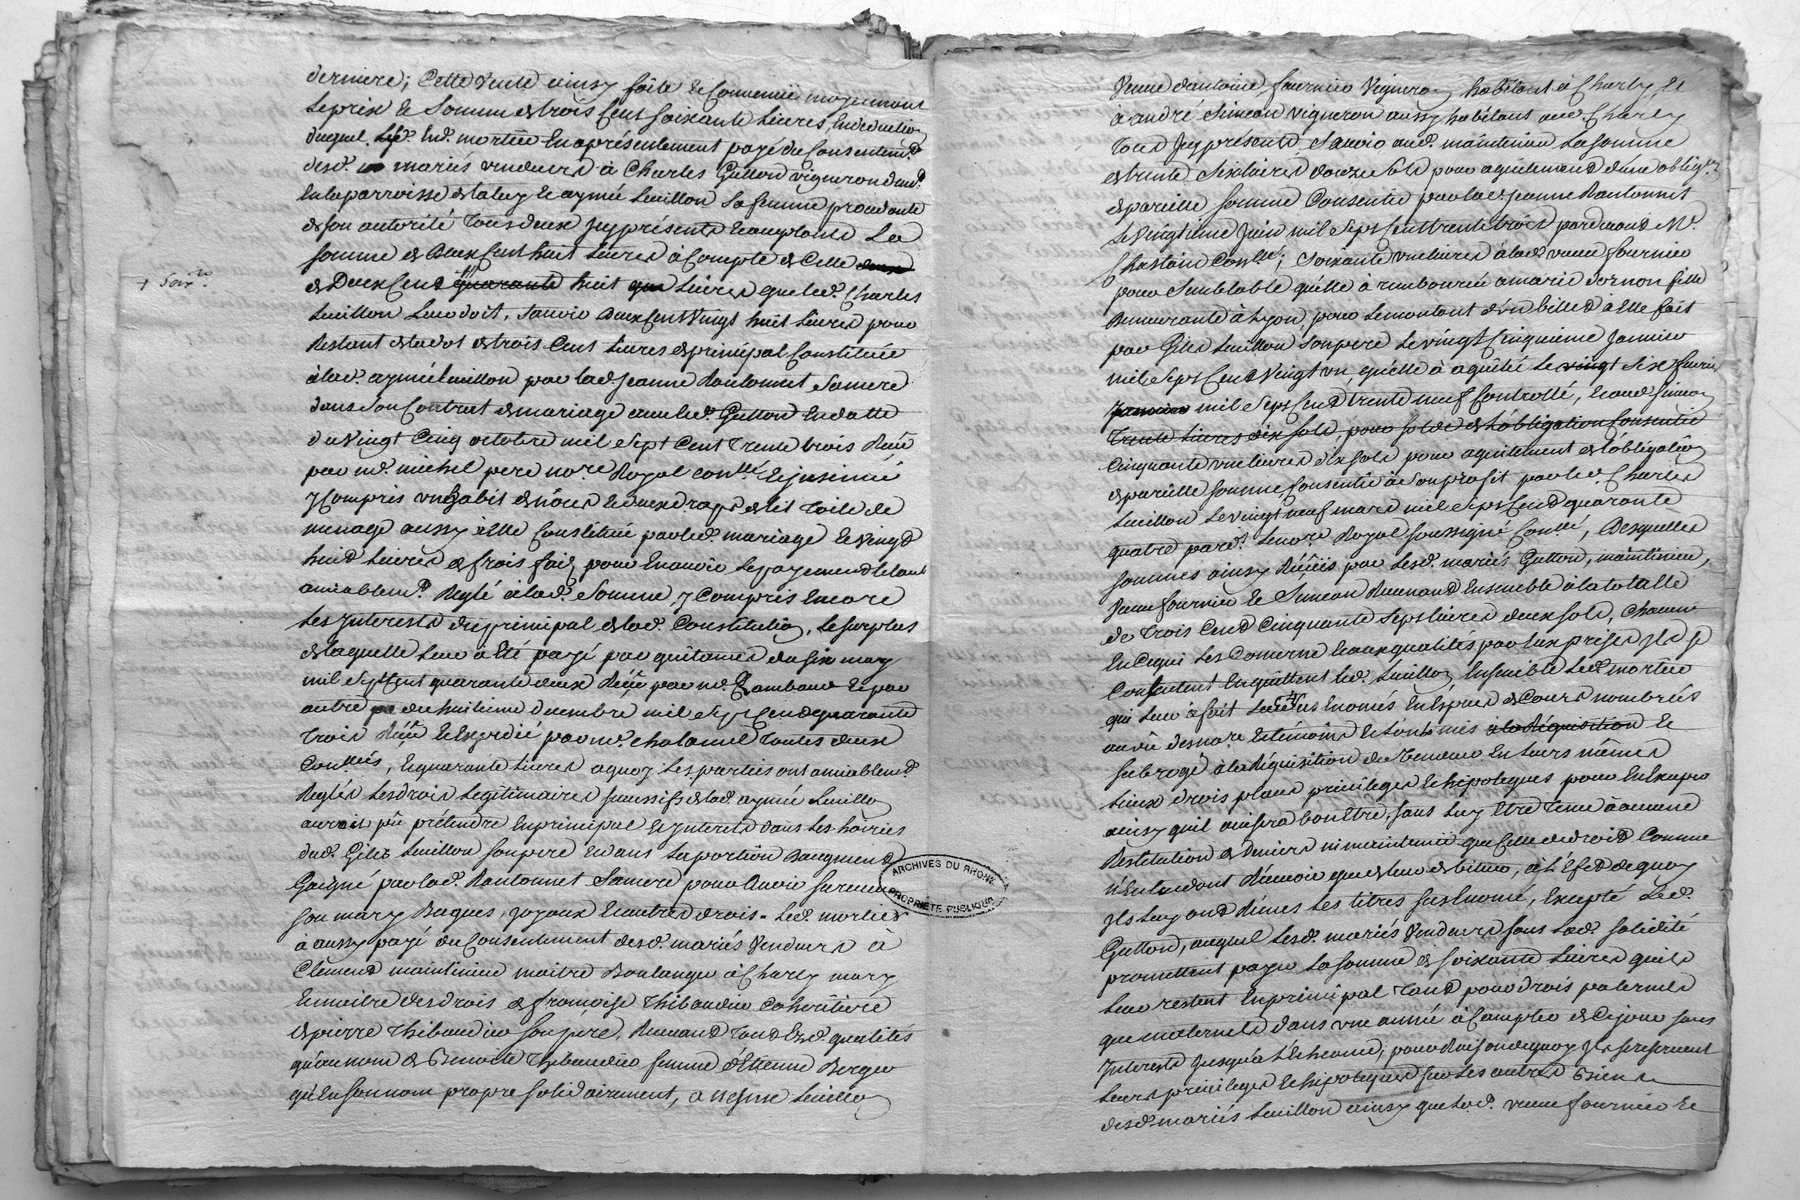 derniere; Cette vente ainsy faite & Convenue moyennant
le prix & Somme de trois Cent soixante livres, En deduction
duquel led. Sr. mortier En a présentement payé du Consentemt
desd. mariés vendeurs à Charles Gutton vigneron
En la parroisse de taluy & aymée Luillon sa femme procedante
de son autorité tous deux icy présents & acceptants La
somme de Deux Cent huit livres à Compte de Celle
de Deux Cent quarante huit livres que led. Charles
+ soixte
Luillon leur doit, Savoir deux Cent vingt huit livres pour
Restant de la dot de trois Cent livres de principal Constituée
à lad. aymée Luillon par lad. Jeanne Rantonnet Sa mere
dans son Contrat de mariage avec led. Gutton En datte
du vingt Cinq octobre mil sept Cent trente trois Reçu
par me. michel pere nore. Royal conllé & insinué
y Compris un habit de nôces & deux draps de lit toile de
menage aussy à Elle Constitué par led. mariage & vingt
huit livres de frais faits pour En avoir le payement le tout
amiablemt. Reglé à lad. Somme, y Compris Encore
les interests du principal de lad. Constitution, le surplus
de laquelle leur a été payé par quittances du six may
mil sept Cent quarante deux Reçue par me. Rambaud & par
autre du huitieme decembre mil sept Cent quarante
trois Reçue & Expedié par me. chalamel toutes deux
Conllées, & quarante livres a quoy les parties ont amiablemt.
Reglés les droits legitimaires successifs de lad. aymée Luillon
auroit pû prétendre En principal & interests dans les hoiries
dud. Giles Luillon son pere & dans la portion d'augment
Gaigné par lad. Rantonnet Sa mere pour avoir survecu
son mary Bagues, joyaux & autres droits - led. mortier
à aussy payé du Consentement desd. mariés vendeurs à
Clement maintinieu maitre Boulanger à Charly mary
& maitre des droits de françoise Thibaudier Cohéritiere
de pierre Thibaudier son pere, Prenant tant Esd. qualités
qu'au nom de Benoite Thibaudier femme d'Etienne Berger
qu'En son nom propre solidairement, à Luillon
Veuve d'antoine fournier vigneron habitant à Charly, &
à andré Simean vigneron aussy habitant aud. Charly
tous icy présents, Savoir aud. maintinieu la somme
de trente six livres douze sols pour aquitement d'une obligon
de pareille somme Consentie par lad. Jeanne Rantonnet
le vingtieme Juin mil Sept Cent trente trois pardevant Me.
Chastain Conllé; soixante une livres à lad. veuve fournier
pour semblable qu'elle à rembourcée a marie dornon fille
demeurante à Lyon, pour le montant d'un billet à Elle fait
par Giles Luillon son pere le vingt Cinquieme Janvier
mil Sept Cent vingt un, qu'elle à aquité le vingt six fevrier
Janvier mil Sept Cent trente neuf Controllé, & aud. Simean
trente livres dix sols, pour solde de l'obligation Consentie
Cinquante une livres dix sols pour aquitement de l'obligation
de pareille somme Consentie à Son profit par led. Charles
Luillon le vingt neuf mars mil Sept Cent quarante
quatre pard. le nore Royal soussigné Conllé, desquelles
sommes ainsy Reçües par lesd. mariés Gutton, maintinieu,
veuve fournier & Simean Revenant Ensemble à la totalle
de trois Cent Cinquante Sept livres deux sols, chacun
En Ce qui les Concerne & aux qualités par Eux prises ils se
Contentent En quittent led. Luillon Ensemble led. mortier
qui leur à fait les Enomés En Especes de Cours nombrées
au vû desd. nore. & témoins & l'ont mis à la Réquisition &
subrogé à la Réquisition des vendeurs En leurs mêmes
lieux droits places privileges & hipoteques pour En Exiper
ainsy quil avisera bon Etre, sans luy Etre tenu à aucune
Restitution de deniers ni maintenue que Celle de droit Comme
n'Entendant Recevoir que de leur debiteur, à l'Efet de quoy
ils luy ont Remis les titres susEnomé, Excepté led.
Gutton, auquel lesd. mariés Vendeurs sous lad. solidité
promettent payer la somme de soixante livres quils
leur restent En principal tant pour droits paternels
que maternels dans une année à Compter de Ce jour sans
interests jusqu'à l'Echeance, pour Raison de quoy ils se reservent
leurs privileges & hipoteques sur les autres Biens
desd. mariés Luillon ainsy que lad. veuve fournier &
ARCHIVES DU RHONE
PROPRIETE PUBLIQUE